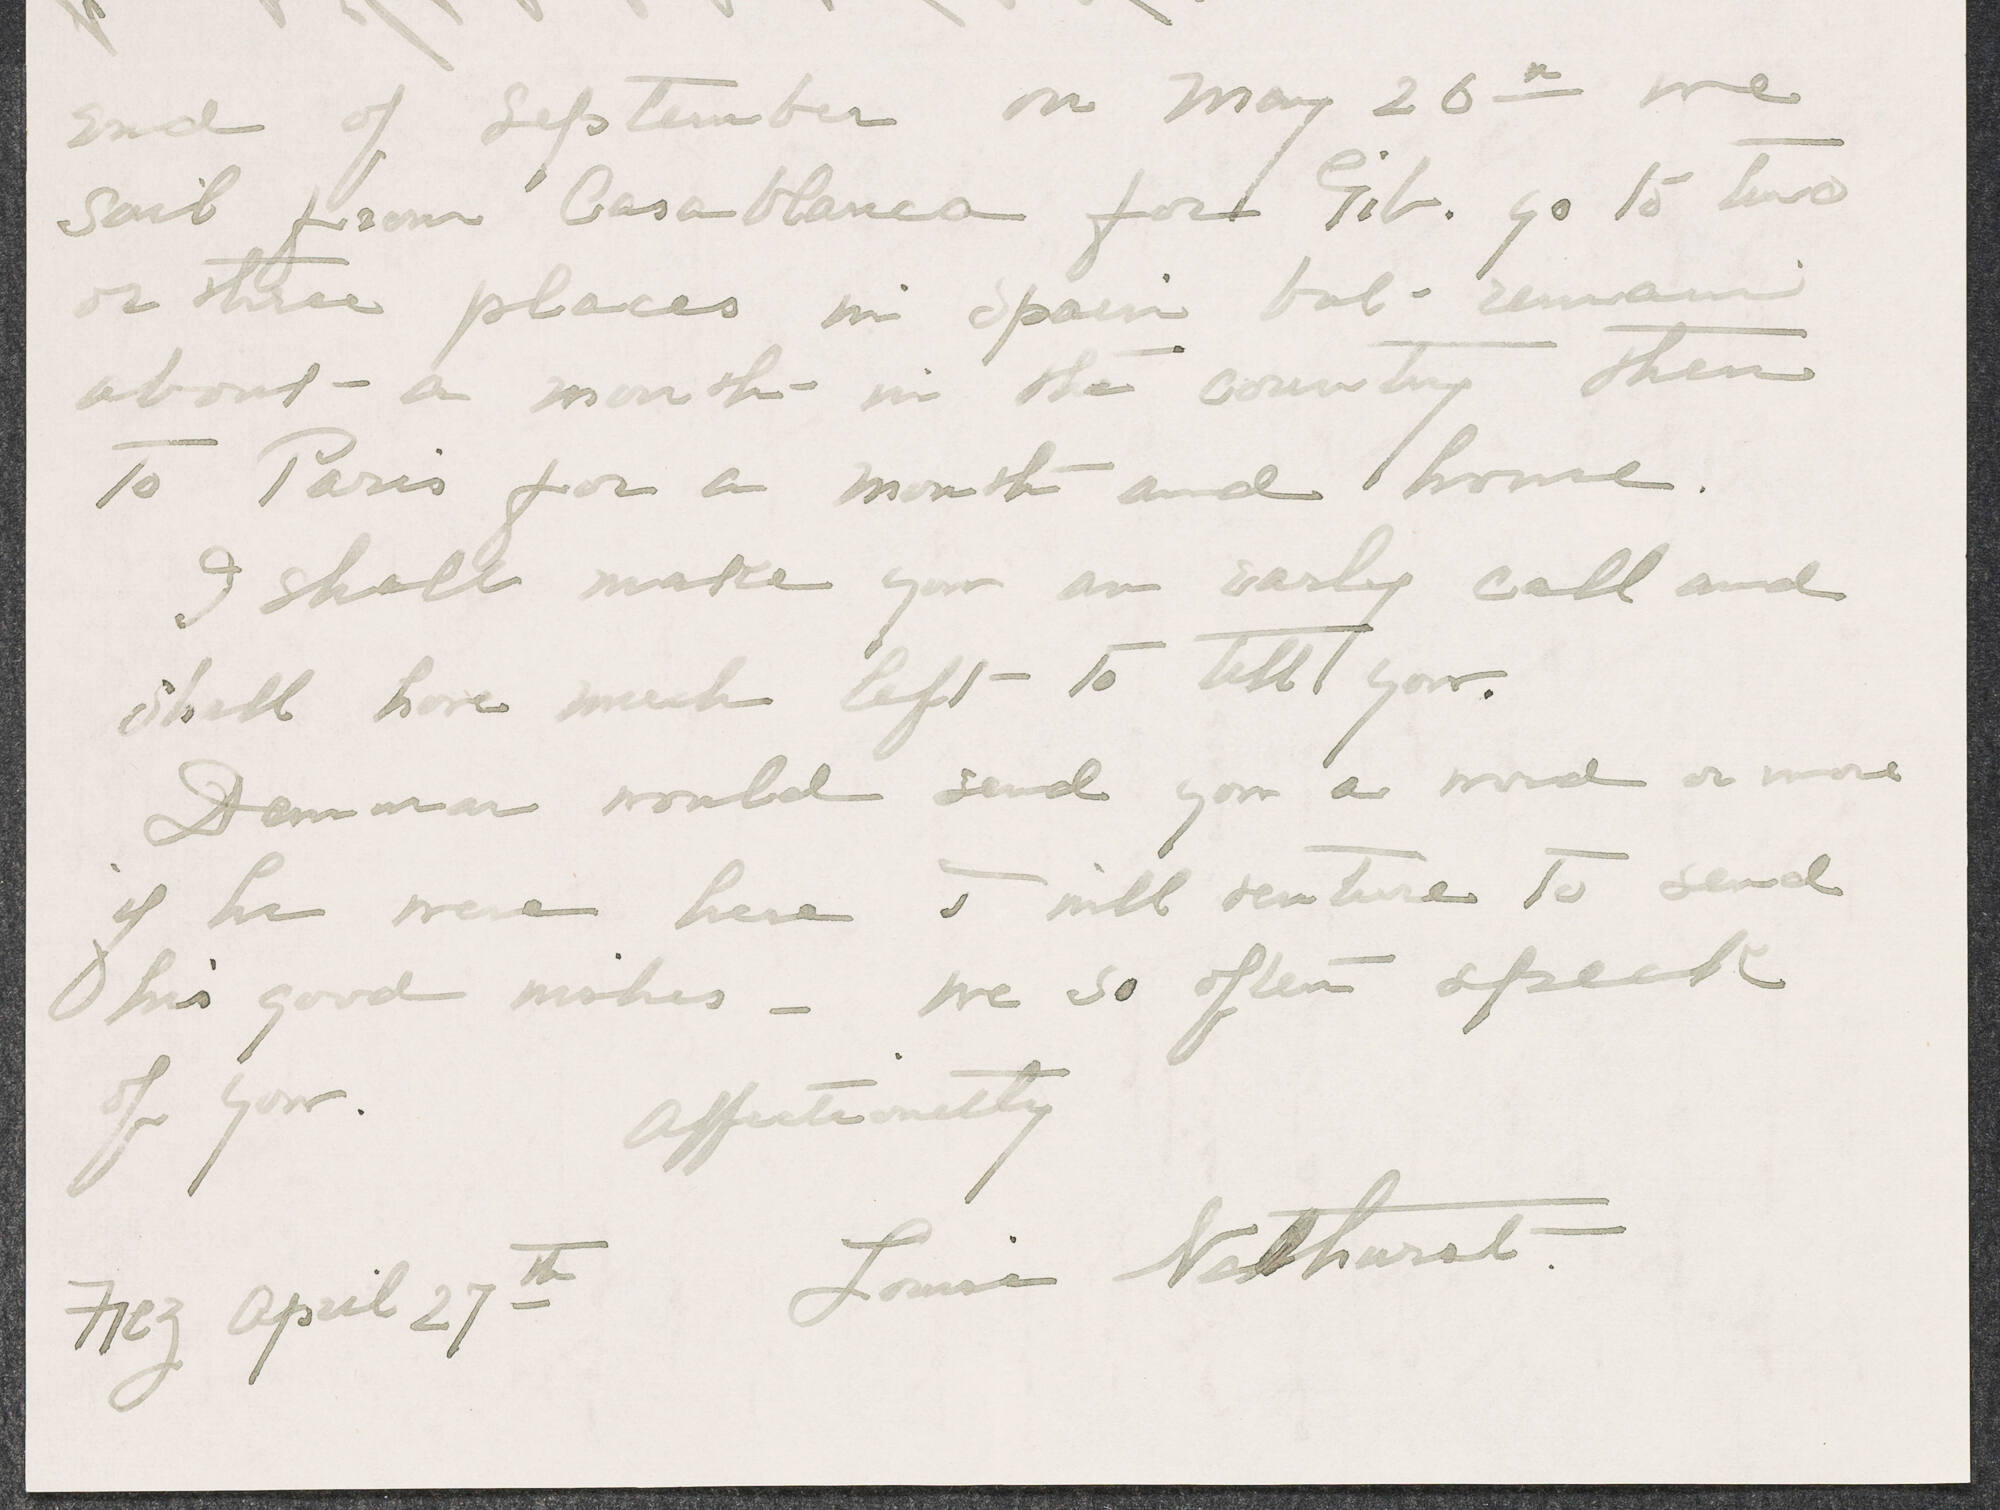 end of September on May 26th we
sail from Casablanca for Gib. go to two
or three places in Spain but remain
about a month in the country then
to Paris for a month and home.
I shall make you an early call and
shall have much left to tell you.
Denman would send you a word or more
if he were here I will venture to send
his good wishes - we so often speak
of you. Affectionately
Louise Nathurst.
Fez April 27th